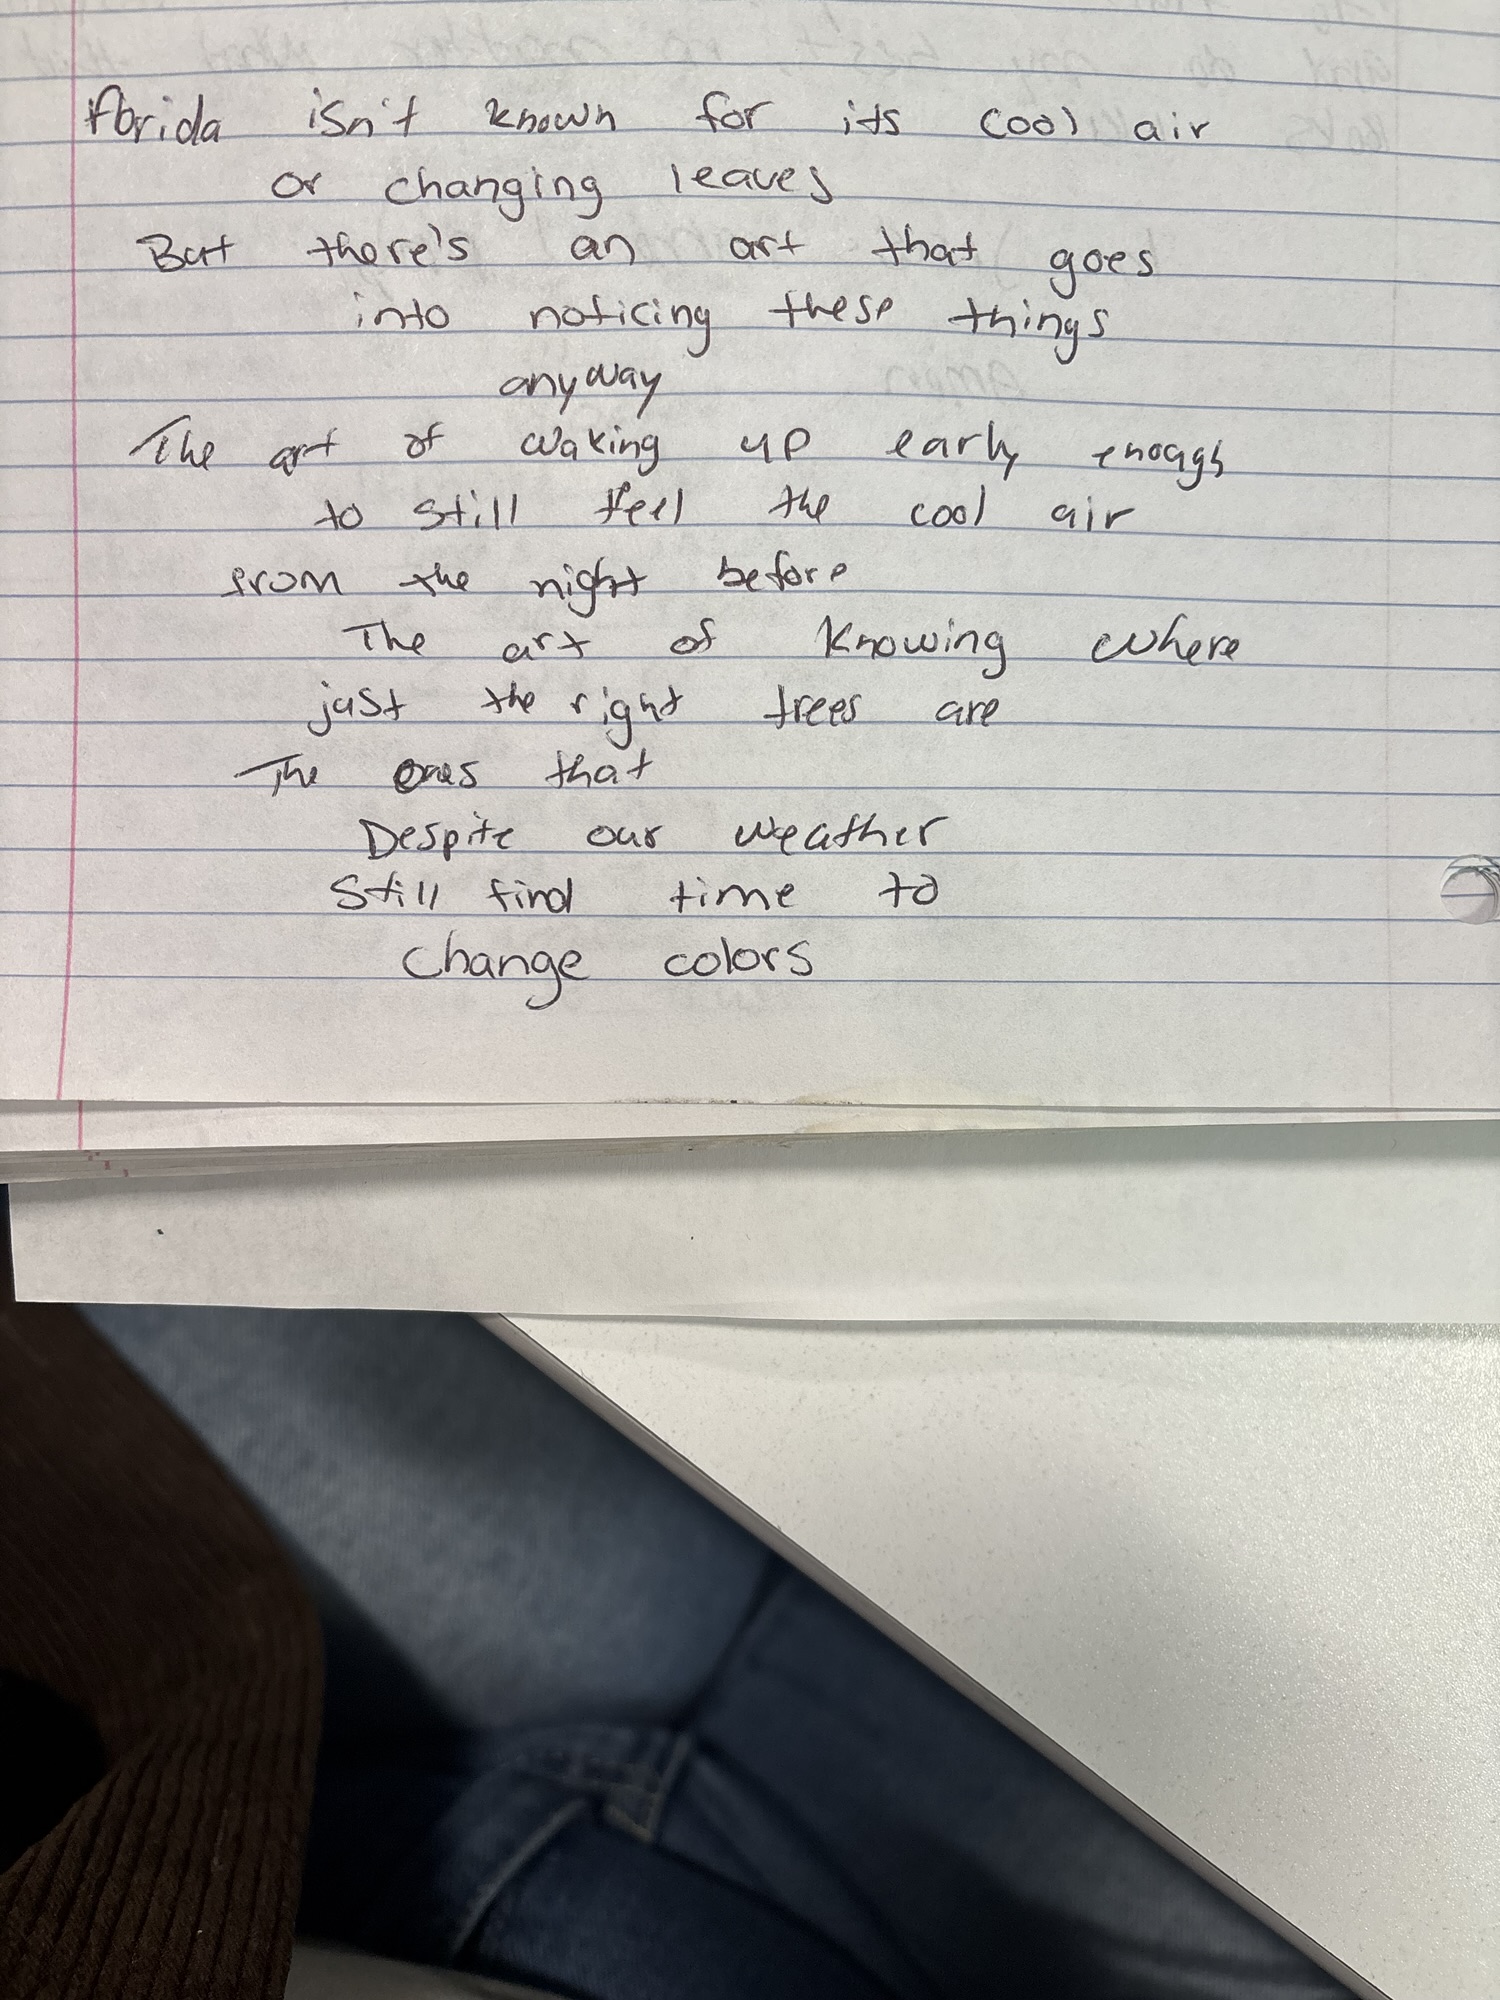 Florida isn't known for its cool air
or changing leaves
But there's an art that goes
into noticing these things
anyway
The art of waking up early enough
to still feel the cool air
from the night before
The art of knowing where
just the right trees are
The ones that
Despite our weather
Still find time to
change colors